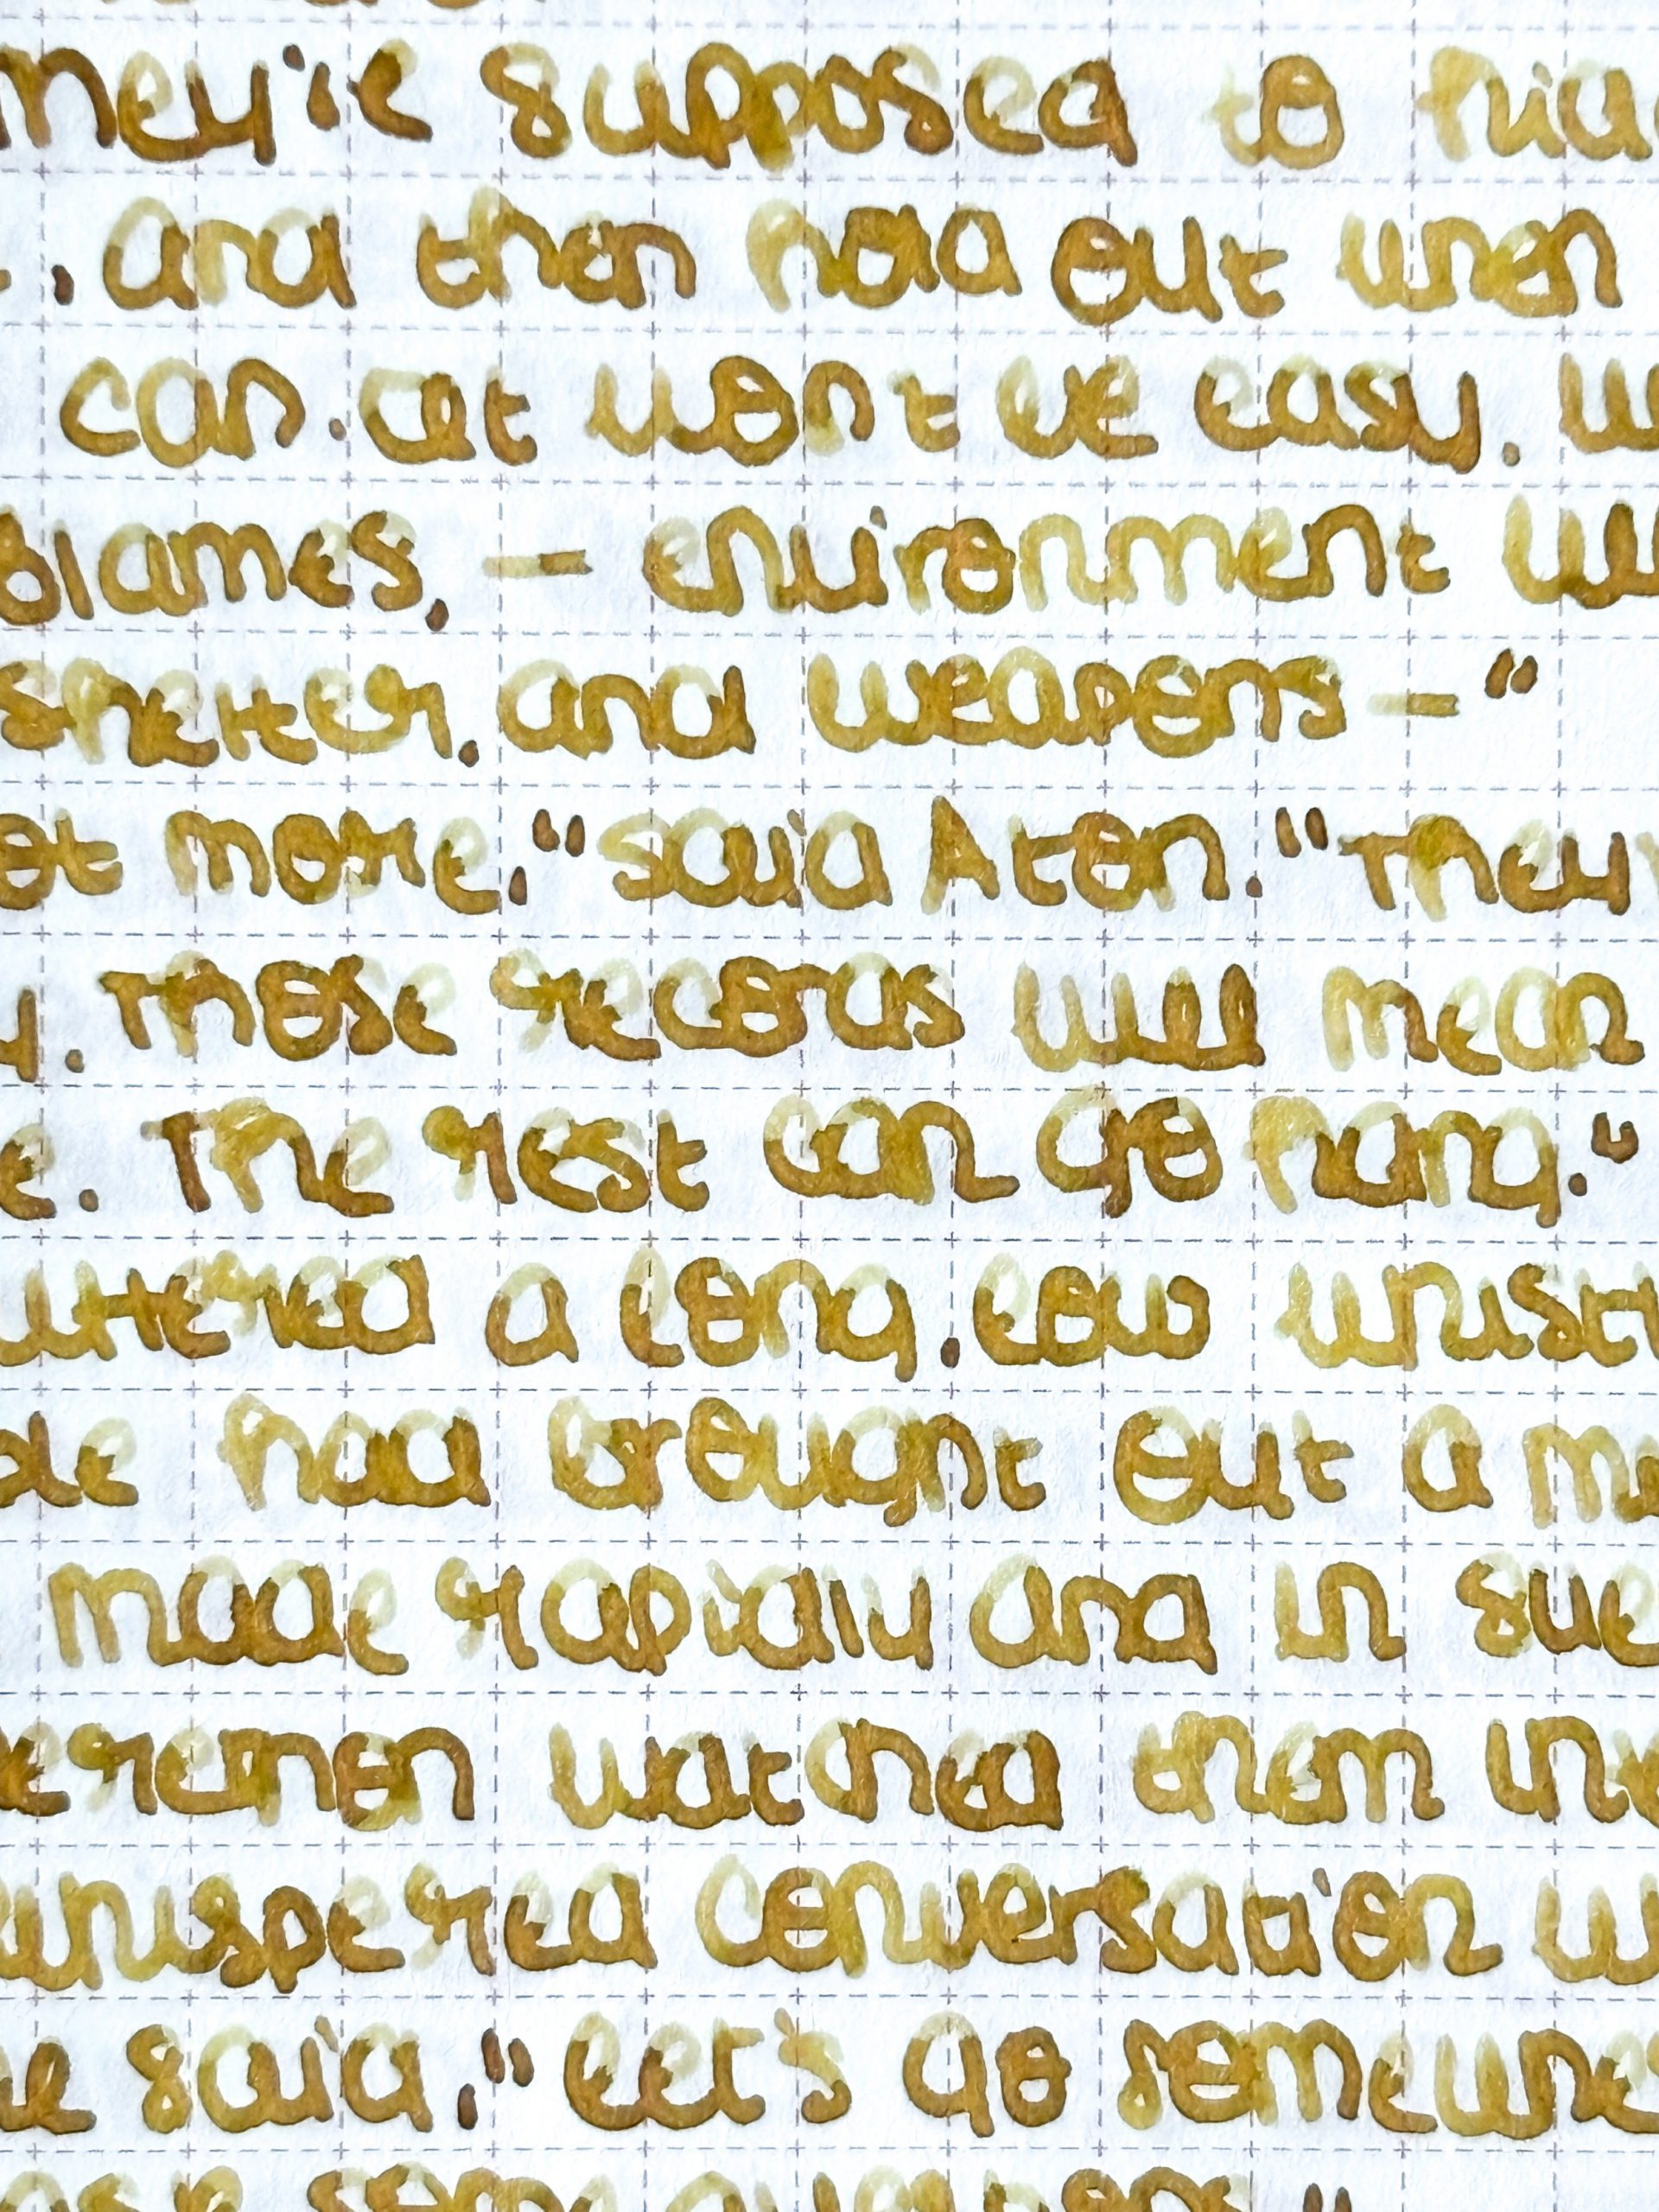 They're supposed to hid
. and then hold out when
can. It won't be easy. W
blames, — environment will
shelter, and weapons —"
ot more," said Aton. "They
y. Those records will mean
e. The rest can go hang."
uttered a long, low whist
de had brought out a mu
made rapidly and in sue
eremon watched them in
whispered conversation w
e said, "Let's go somewhe